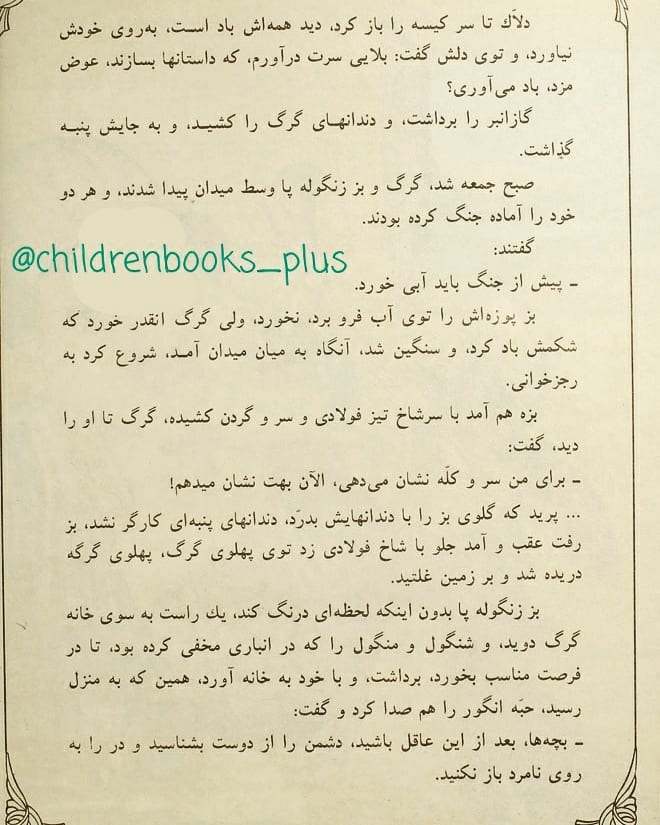 دلاّك تا سر کیسه را باز کرد، دید همه‌اش باد است، به‌روی خودش
نیاورد، و توی دلش گفت: بلایی سرت درآورم، که داستانها بسازند، عوض
مزد، باد می‌آوری؟
گازانبر را برداشت، و دندانهـای گرگ را کشیـد، و به جایش پنبـه
گذاشت.
صبح جمعه شد، گرگ و بز زنگوله پا وسط میدان پیدا شدند، و هر دو
خود را آماده جنگ کرده بودند.
گفتند:
@childrenbooks_plus
ـ پیش از جنگ باید آبی خورد.
بز پوزه‌اش را توی آب فرو برد، نخورد، ولی گرگ انقدر خورد که
شکمش باد کرد، و سنگین شد، آنگاه به میان میدان آمـد، شروع کرد به
رجزخوانی.
بزه هم آمد با سرشاخ تیز فولادی و سر و گردن کشیده، گرگ تا او را
دید، گفت:
ـ برای من سر و کلّه نشان می‌دهی، الآن بهت نشان میدهم!
... پرید که گلوی بز را با دندانهایش بدرّد، دندانهای پنبه‌ای کارگر نشد، بز
رفت عقب و آمد جلو با شاخ فولادی زد توی پهلوی گرگ، پهلوی گرگه
دریده شد و بر زمین غلتید.
بز زنگوله پا بدون اینکه لحظه‌ای درنگ کند، یك راست به سوی خانه
گرگ دوید، و شنگول و منگول را که در انباری مخفی کرده بود، تا در
فرصت مناسب بخورد، برداشت، و با خود به خانه آورد، همین که به منزل
رسید، حبّه انگور را هم صدا کرد و گفت:
ـ بچه‌ها، بعد از این عاقل باشید، دشمن را از دوست بشناسید و در را به
روی نامرد باز نکنید.